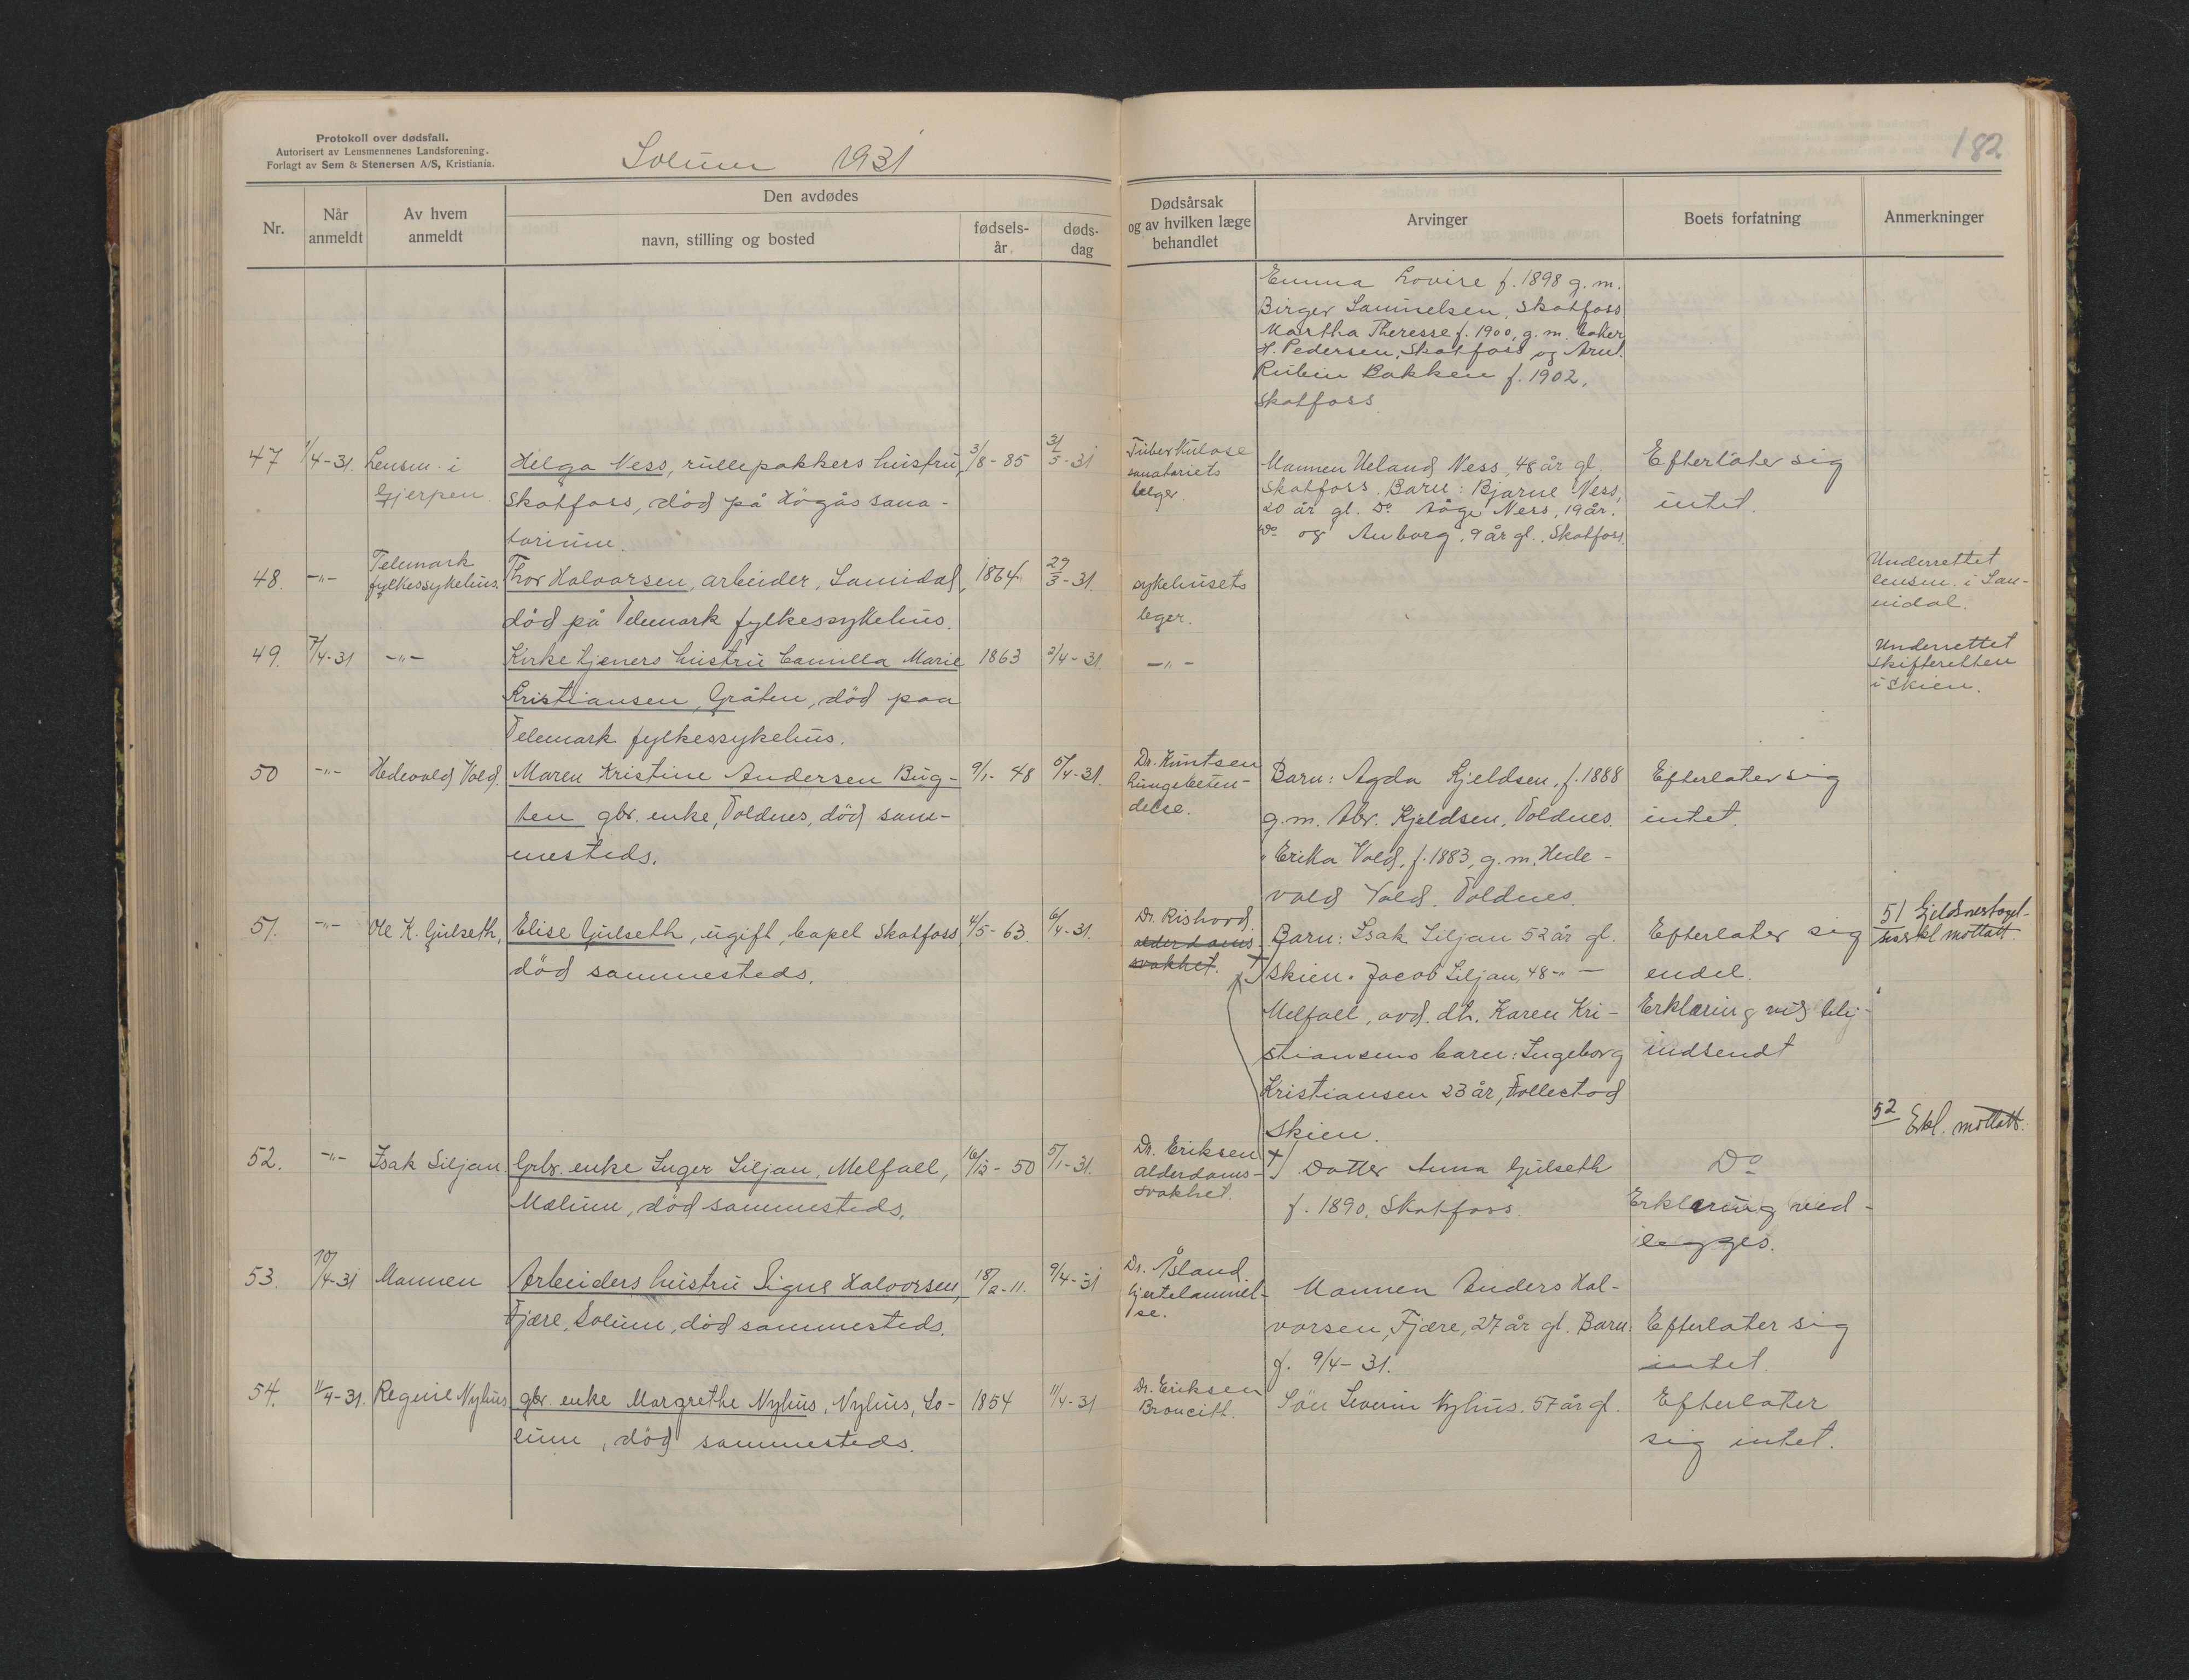 Protokoll over dødsfall.
Autorisert av Lensmennenes Landsforening.
Forlagt av Sem & Stenersen A/S, Kristiania.
Solum 1931
182
Nr.
Når anmeldt
Av hvem anmeldt
Den avdødes
navn, stilling og bosted
fødsels-år.
døds-dag
Dødsårsak og av hvilken læge behandlet
Arvinger
Boets forfatning
Anmerkninger
Emma Lovise f. 1898 g. m.
Birger Samuelsen, Skotfoss
Martha Theresse f. 1900, g. m. baker
H. Pedersen, Skotfoss og Arnt
Rubin Bakken f. 1902,
Skotfoss.
47 1/4-31. Lensm. i
Gjerpen.
Helga Ness, rullepakkers hustru, 3/8-85 31/3-31
Skotfoss, død på Högås sana-
torium.
Tuberkulose
sanatoriets
leger.
Mannen Ueland Ness, 48 år gl.
Skotfoss. Barn: Bjarne Ness,
20 år gl. Do Åge Ness, 19 år.
Do og Anborg, 9 år gl., Skotfoss.
Efterlater sig
intet.
48. -"- Telemark
fylkessykehus.
Thor Halvorsen, arbeider, Sannidal, 1864. 29/3-31.
død på Telemark fylkessykehus.
sykehusets
leger.
Underrettet
lensm. i San-
nidal.
49. 7/4-31 -"-
Kirketjeners hustru Camilla Marie 1863 2/4-31.
Kristiansen, Gråten, död paa
Telemark fylkessykehus.
-"-
Underrettet
skifteretten
i Skien.
50 -"- Hedevald Vold.
Maren Kristine Andersen Bug- 9/1-48 5/4-31.
ten gbr. enke, Voldnes, död sam-
mesteds.
Dr. Knutsen
Lungebeten-
delse.
Barn: Agda Kjeldsen, f. 1888
g. m. Abr. Kjeldsen, Voldnes.
" Erika Vold, f. 1883, g. m. Hede-
vald Vold. Voldnes.
Efterlater sig
intet.
51. -"- Ole K. Gulseth,
Elise Gulseth, ugift, Capel Skotfoss, 4/5-63. 6/4-31.
död sammesteds.
Dr. Rishovd.
alderdoms-
svakhet.
Barn: Isak Siljan 52 år gl.
Skien. Jacob Siljan, 48 -"-
Melfall, avd. dtr. Karen Kri-
stiansens barn: Ingeborg
Kristiansen 23 år, Follestad
Skien.
Efterlater sig
endel.
Erklæring vil bli
indsendt
51 Gjeldsovertagel-
ses erkl mottatt.
52 Erkl. mottatt.
52. -"- Isak Siljan.
Gbr. enke Inger Siljan, Melfall, 16/12-50 5/1-31.
Mælum, död sammesteds.
Dr. Eriksen
Alderdoms-
svakhet.
Datter Anna Gulseth
f. 1890, Skotfoss.
Do
Erklæring ved-
legges.
53. 10/4-31 Mannen
Arbeiders hustru Signe Halvorsen, 18/2-11. 9/4-31
Fjære, Solum, död sammesteds.
Dr. Åsland.
hjertelammel-
se.
Mannen Anders Hal-
vorsen, Fjære, 27 år gl. Barn:
f. 9/4-31.
Efterlater sig
intet.
54. 11/4-31. Reguil Nyhus
gbr. enke Margrethe Nyhus, Nyhus, So- 1854 11/4-31
lum, död sammesteds.
Dr. Eriksen
Broncitt.
Sön Severin Nyhus. 57 år gl.
Efterlater
sig intet.